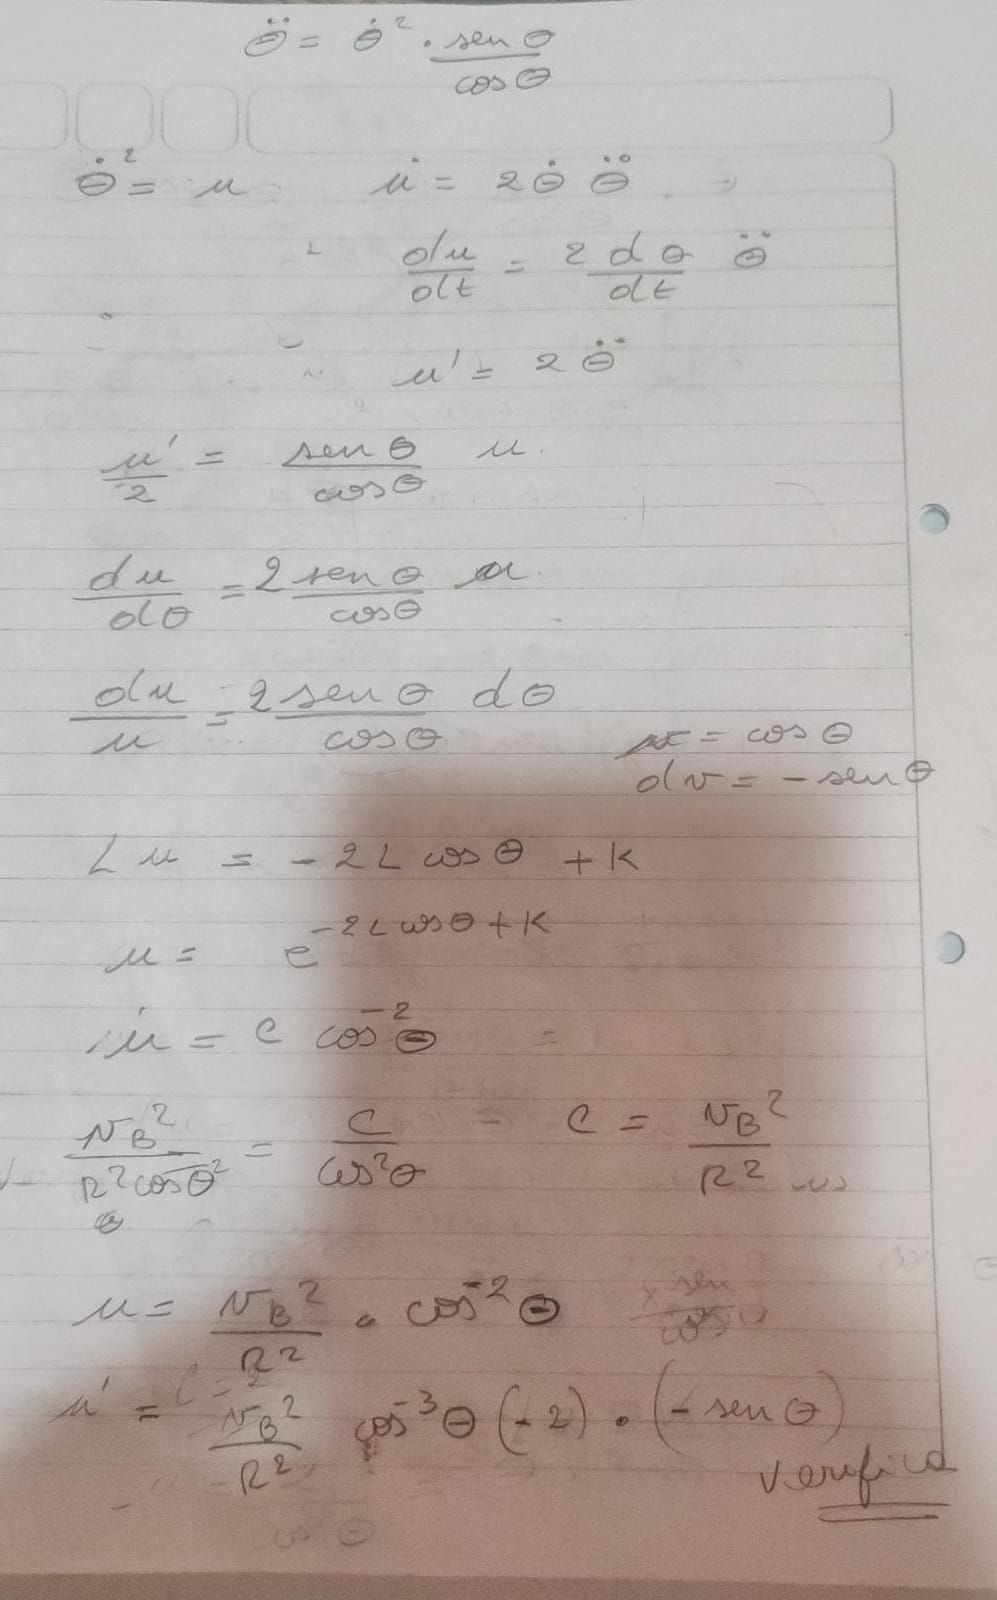 θ̈ = θ̇² · sen θ / cos θ
θ̇² = u    u̇ = 2 θ̇ θ̈
du/dt = 2 dθ/dt θ̈
u' = 2 θ̈
u'/2 = sen θ / cos θ u
du/dθ = 2 sen θ / cos θ u
du/u = 2 sen θ / cos θ dθ
v = cos θ
dv = - sen θ
L u = - 2 L cos θ + K
u = e^(-2 L cos θ + K)
u = c cos⁻² θ
v_B² / R² cos θ² = C / cos² θ    C = v_B² / R²
u = v_B² / R² · cos⁻² θ
u' = v_B² / R² cos⁻³ θ (-2) · (- sen θ)
Verifica